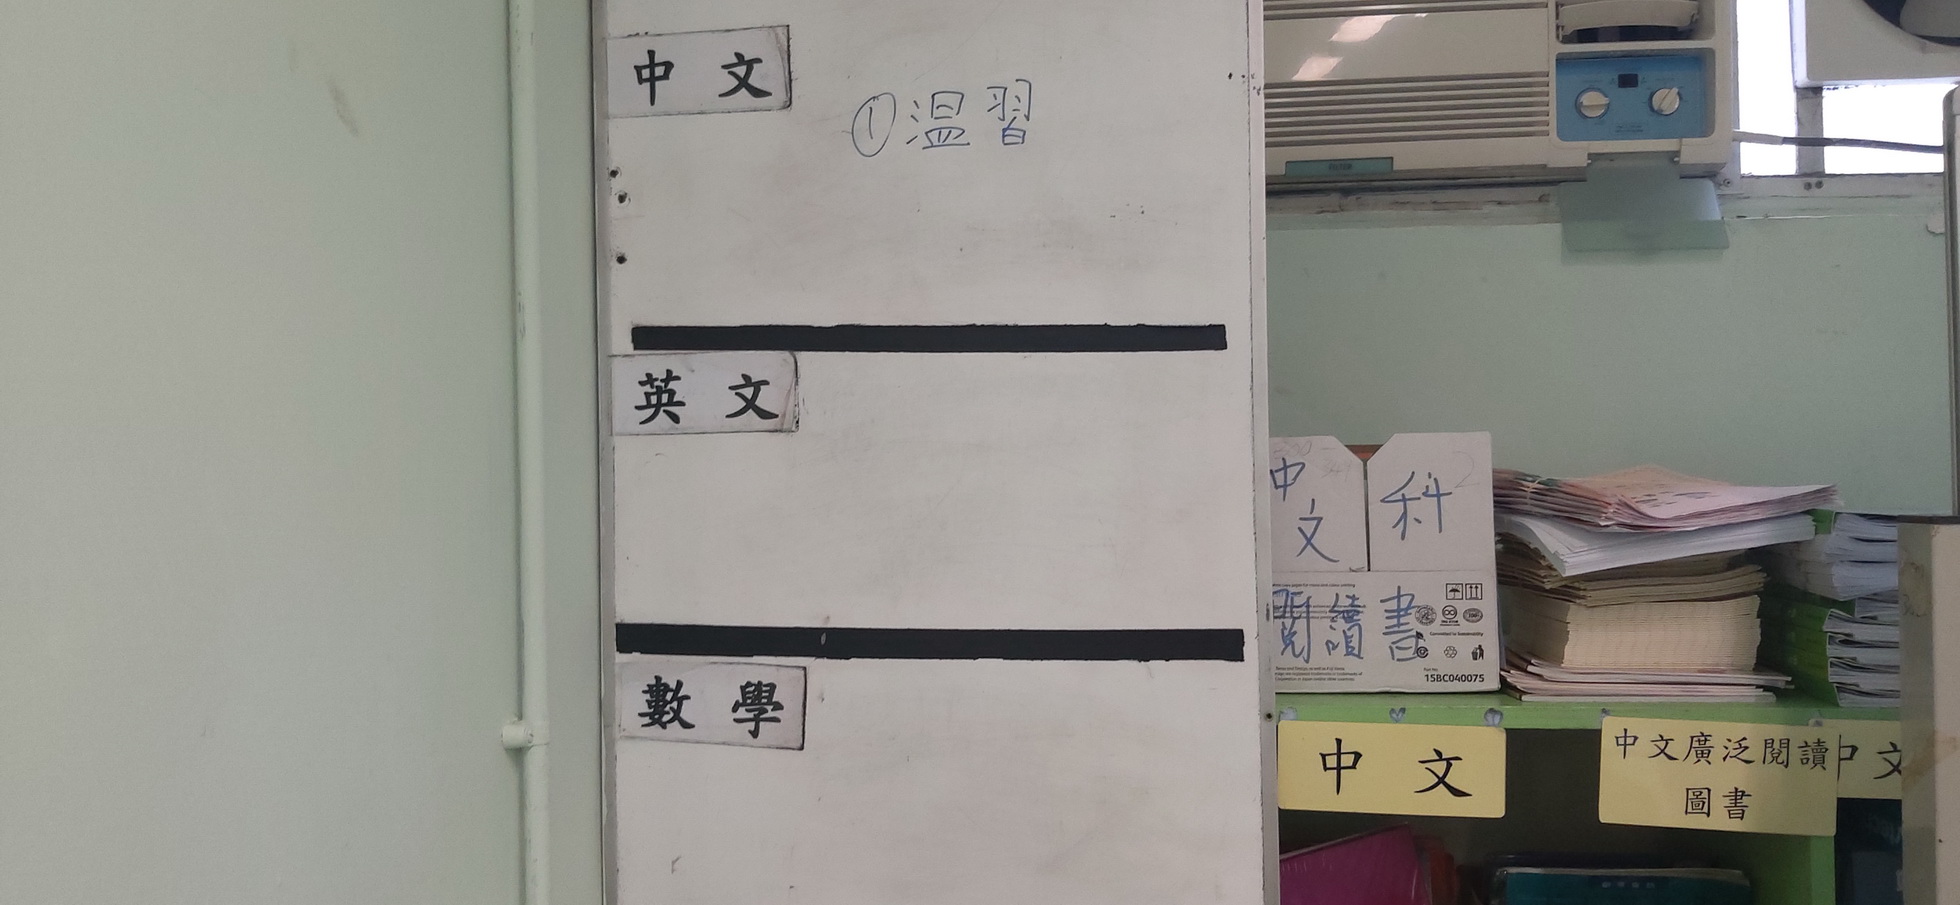 中文
①温習
英文
數學
中文
科
閱讀書
Committed to Sustainability
15BC040075
中文
中文廣泛閱讀
圖書
中文